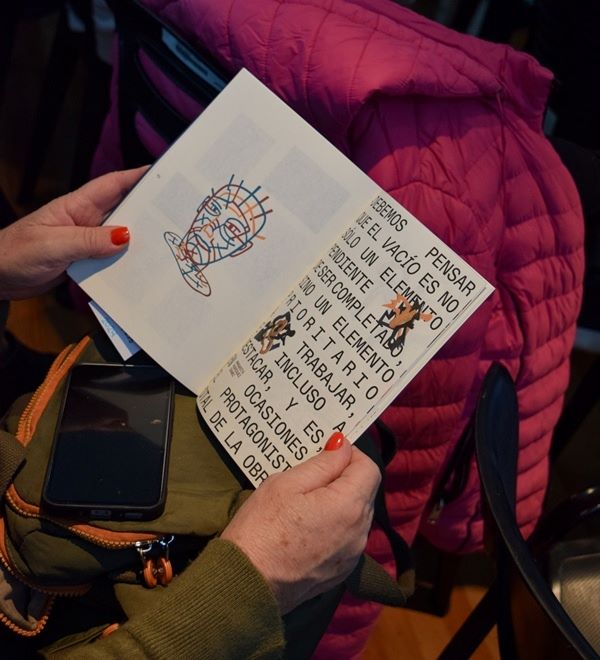 DEBEMOS PENSAR
QUE EL VACÍO ES NO
SÓLO UN ELEMENTO
PENDIENTE
DE SER COMPLETADO,
SINO UN ELEMENTO
PRIORITARIO
TRABAJAR,
INCLUSO A
ESTACAR, Y ES,
OCASIONES,
PROTAGONIST
TAL DE LA OBR